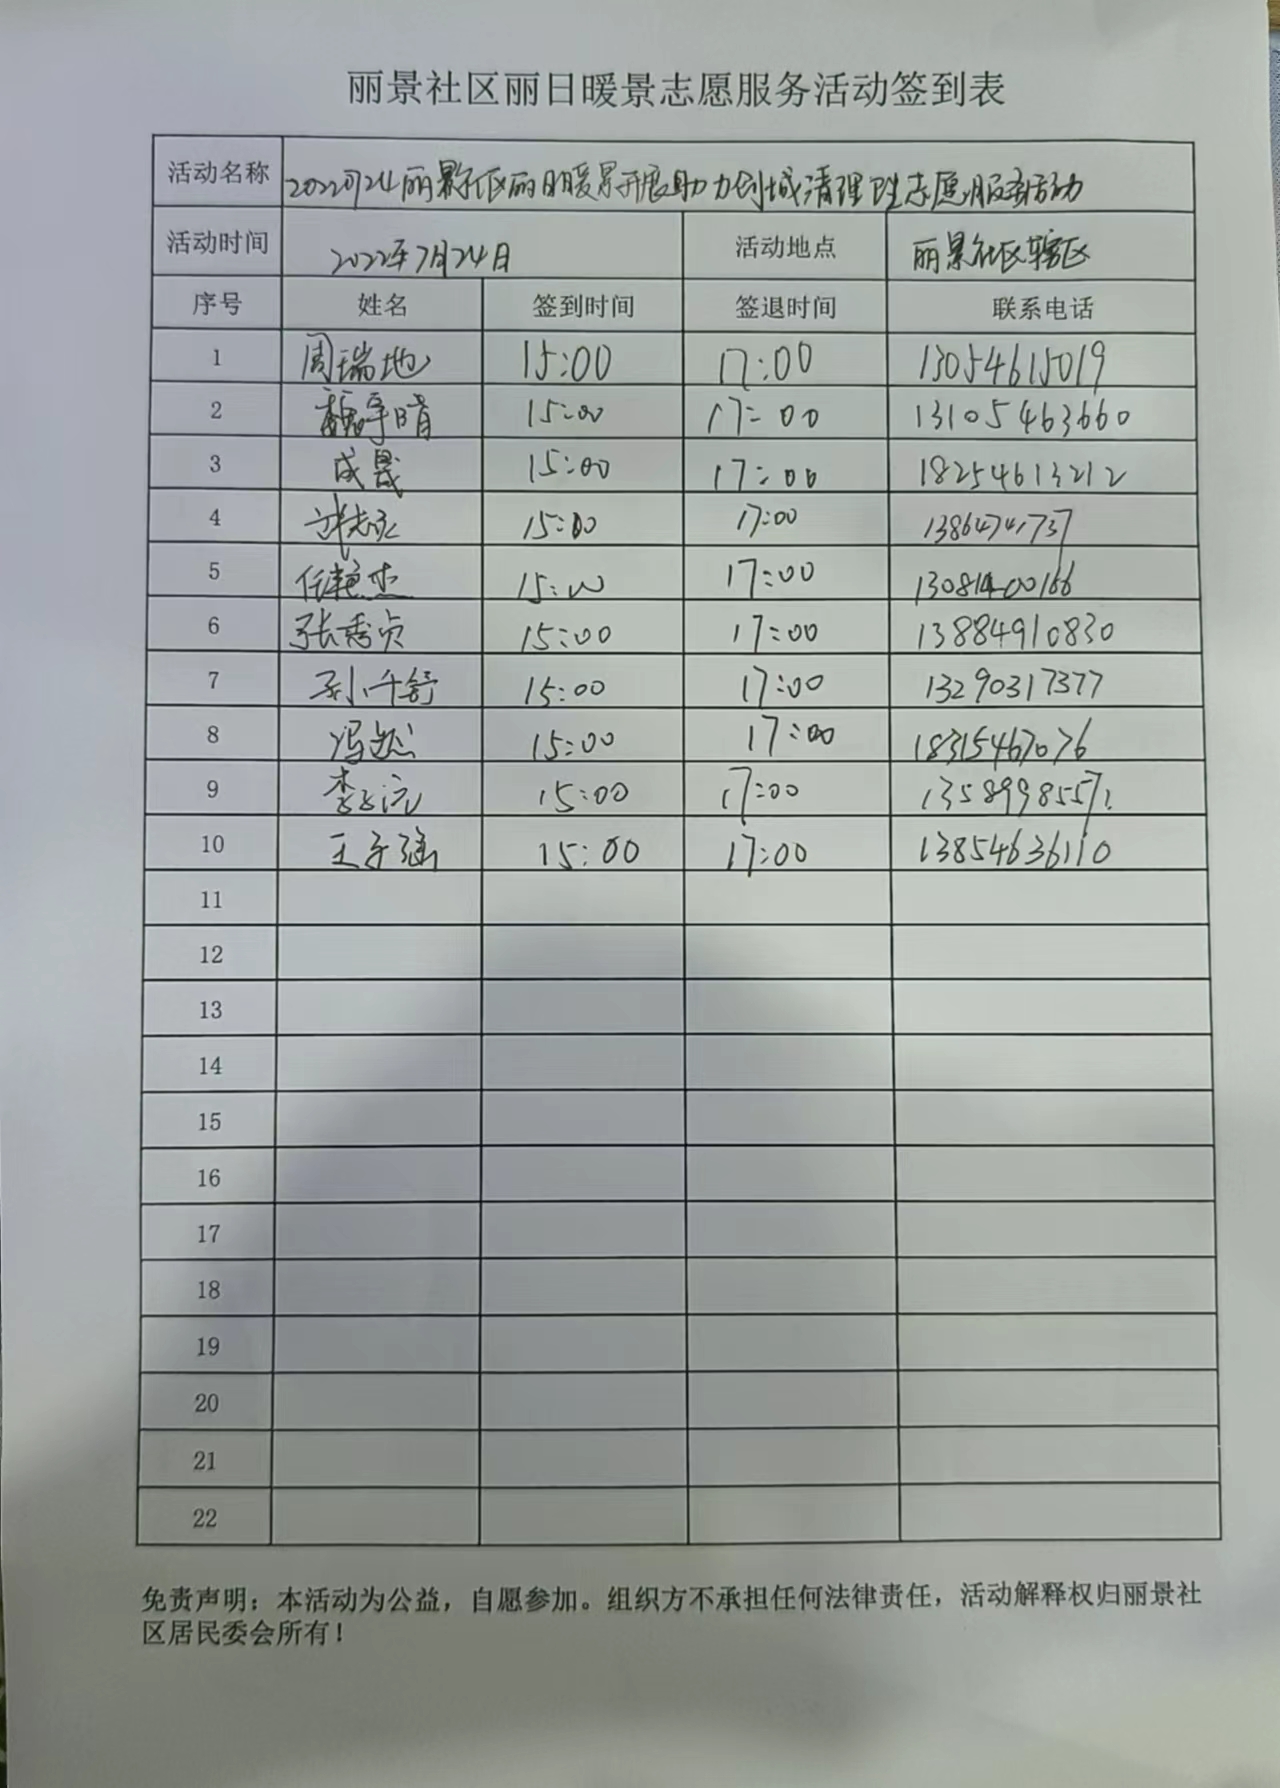 丽景社区丽日暖景志愿服务活动签到表
活动名称 丽景社区丽日暖景开展助力创城清理 志愿服务活动
活动时间 2022年7月24日 活动地点 丽景社区辖区
序号 姓名 签到时间 签退时间 联系电话
1 周瑞地 15:00 17:00 13054615019
2 魏子晴 15:00 17:00 13105463660
3 成晟 15:00 17:00 18254613212
4 15:00 17:00 13864741737
5 任艳杰 15:00 17:00
6 张秀贞 15:00 17:00 13884910830
7 孙千舒 15:00 17:00 13290317377
8 15:00 17:00 18315467076
9 李元 15:00 17:00
10 王子涵 15:00 17:00 13854636110
11
12
13
14
15
16
17
18
19
20
21
22
免责声明：本活动为公益，自愿参加。组织方不承担任何法律责任，活动解释权归丽景社
区居民委会所有！